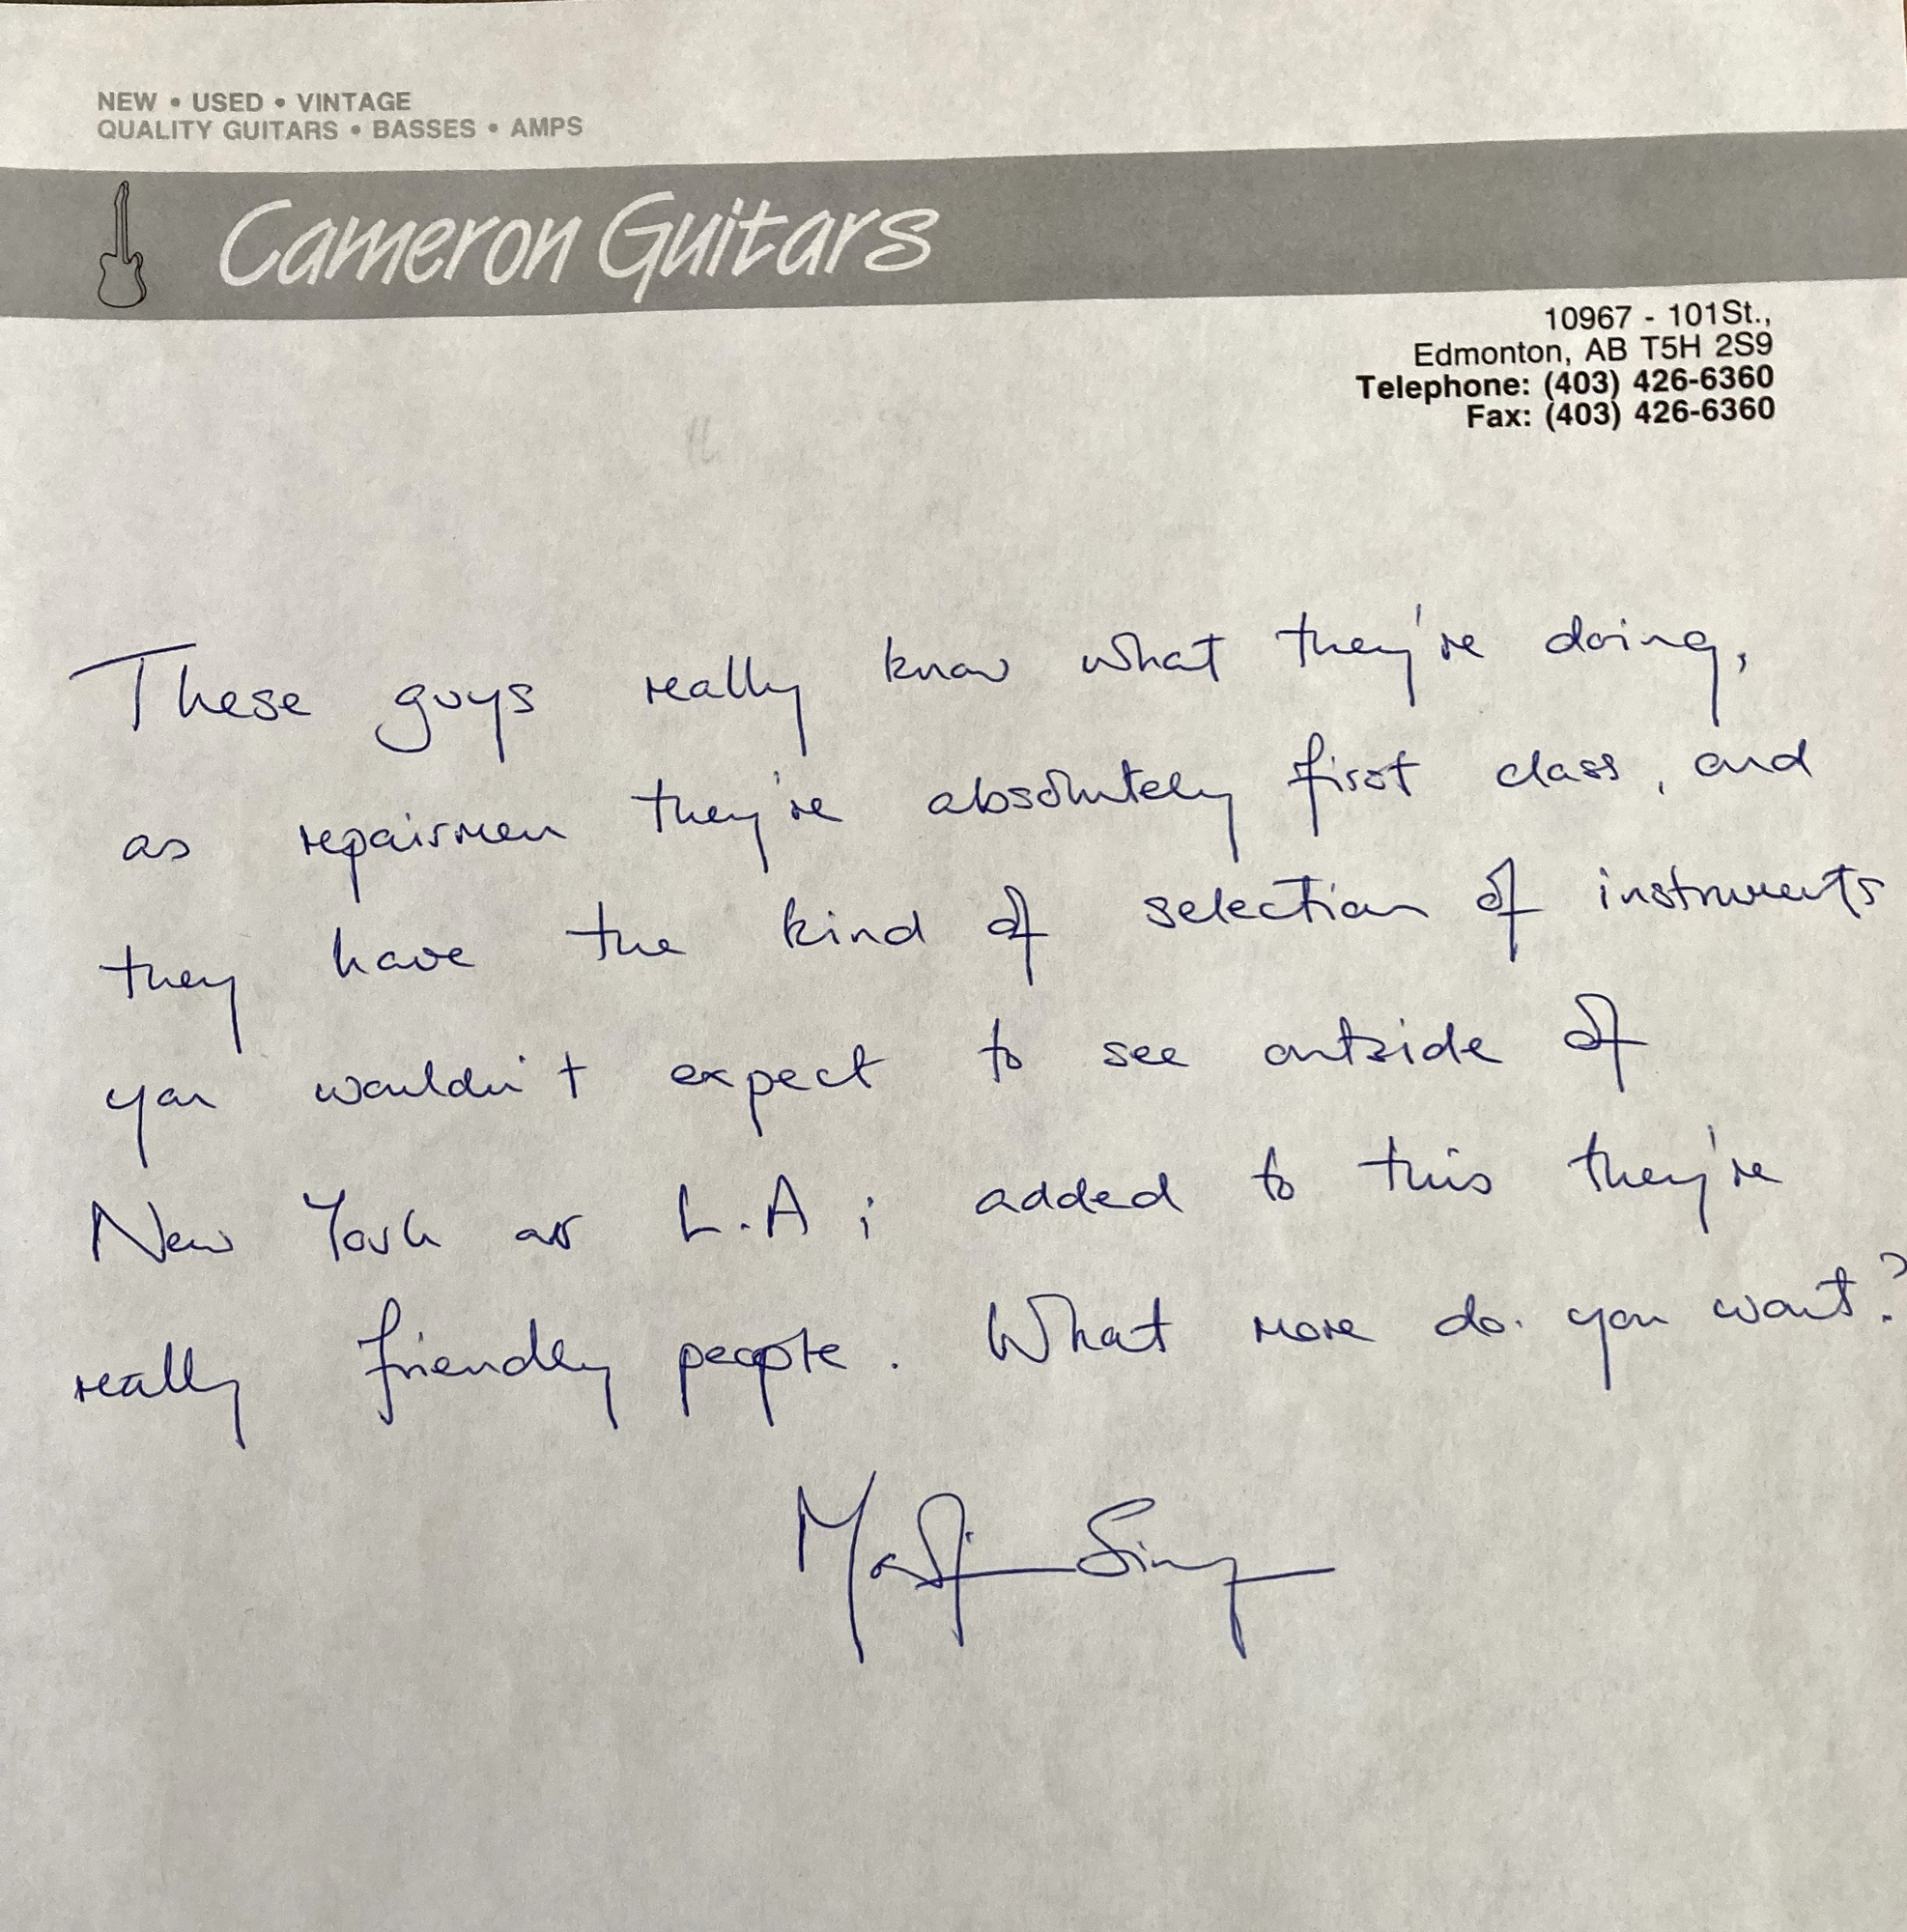 NEW • USED • VINTAGE
QUALITY GUITARS • BASSES • AMPS
Cameron Guitars
10967 - 101St.,
Edmonton, AB T5H 2S9
Telephone: (403) 426-6360
Fax: (403) 426-6360
These guys really know what they're doing,
as repairmen they're absolutely first class, and
they have the kind of selection of instruments
you wouldn't expect to see outside of
New York or L.A ; added to this they're
really friendly people. What more do you want?
Martin Simp